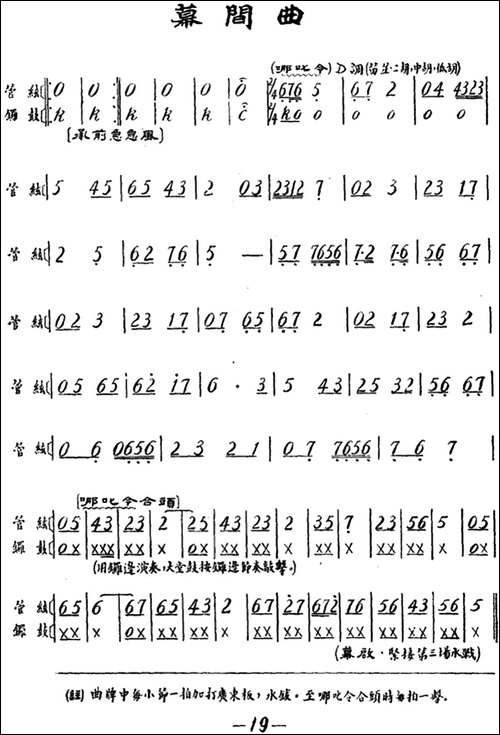 幕間曲
(哪吒令) D調(笛笙·二胡,中胡,低胡)
管絃 0 | 0 | 0 | 0 | 0 | 0 | 2/4 676 5 | 67 2 | 04 4323
鑼鼓 k | k | k | k | k | c | 2/4 k0 0 | 0 0 | 0 0
[承前急急風]
管絃 5 45 | 65 43 | 2 03 | 2312 7 | 02 3 | 23 17
管絃 2 5 | 62 76 | 5 — | 57 7656 | 7·2 7·6 | 56 67
管絃 02 3 | 23 17 | 07 65 | 67 2 | 02 17 | 23 2
管絃 05 65 | 62 17 | 6 · 3 | 5 43 | 25 32 | 56 67
管絃 0 6 0656 | 2 3 2 1 | 0 7 7656 | 7 6 7
[哪吒令合頭]
管絃 05 | 43 | 23 | 2 | 25 | 43 | 23 | 2 | 35 | 7 | 23 | 56 | 5 | 05
鑼鼓 0x | xxx | xx | x | 0x | xx | xx | x | xx | x | xx | xx | x | 0x
(用鑼邊演奏,大堂鼓按鑼邊節奏敲擊。)
管絃 65 | 6 | 67 | 65 | 43 | 2 | 67 | 27 | 672 | 76 | 56 | 43 | 56 | 5
鑼鼓 xx | x | 0x | xx | xx | x | xx | xx | xx | xx | xx | xx | xx | x
(幕啟·緊接第三場水戰)
(註) 曲牌中每小節一拍加打廣東板,水鈸。至哪吒令合頭時每拍一擊。
—19—